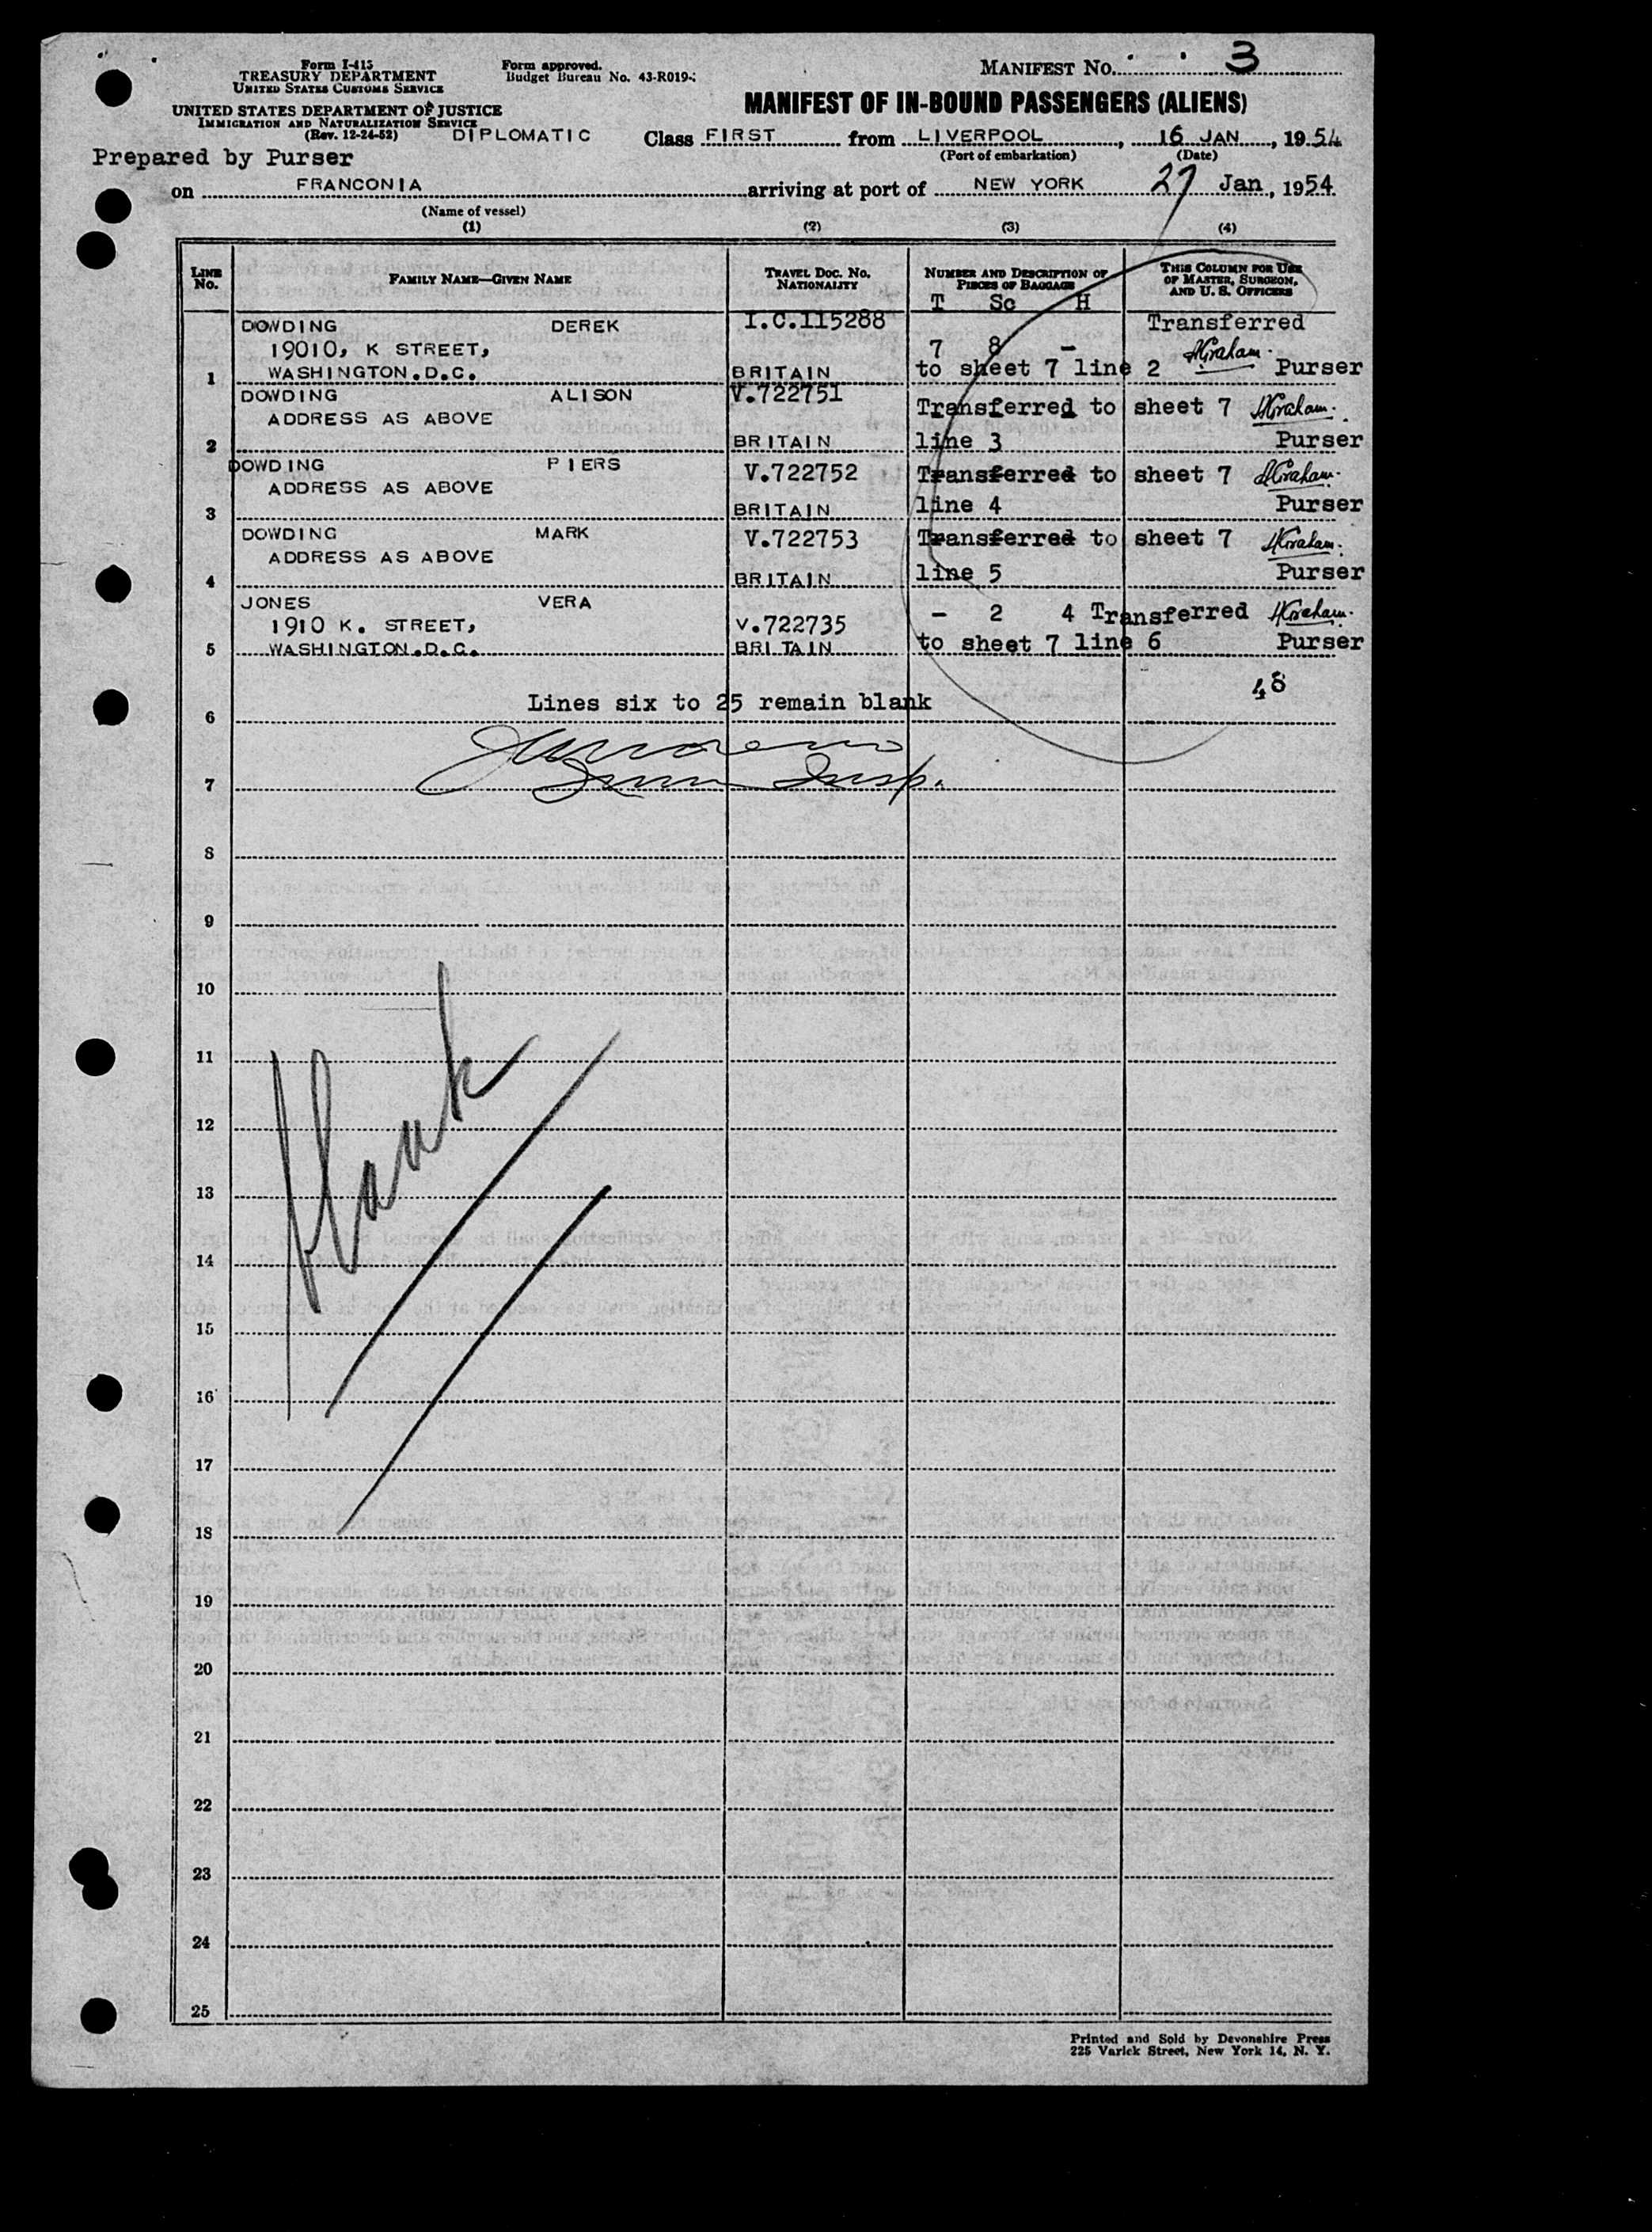 Form I-415
TREASURY DEPARTMENT
UNITED STATES CUSTOMS SERVICE
UNITED STATES DEPARTMENT OF JUSTICE
IMMIGRATION AND NATURALIZATION SERVICE
(Rev. 12-24-52)
Form approved.
Budget Bureau No. 43-R019-
MANIFEST No. 3
MANIFEST OF IN-BOUND PASSENGERS (ALIENS)
DIPLOMATIC Class FIRST from LIVERPOOL, 16 JAN, 1954
(Port of embarkation) (Date)
Prepared by Purser
on FRANCONIA arriving at port of NEW YORK 27 Jan, 1954
(Name of vessel)
(1) (2) (3) (4)
LINE No. FAMILY NAME—GIVEN NAME TRAVEL DOC. NO. NATIONALITY NUMBER AND DESCRIPTION OF PIECES OF BAGGAGE THIS COLUMN FOR USE OF MASTER, SURGEON, AND U. S. OFFICERS
T Sc H
DOWDING DEREK I.C.115288 Transferred
19010, K STREET, 7 8 - HGraham.
1 WASHINGTON.D.C. BRITAIN to sheet 7 line 2 Purser
DOWDING ALISON V.722751
ADDRESS AS ABOVE Transferred to sheet 7 HGraham.
2 BRITAIN line 3 Purser
DOWDING PIERS V.722752 Transferred to sheet 7 HGraham.
ADDRESS AS ABOVE
3 BRITAIN line 4 Purser
DOWDING MARK V.722753 Transferred to sheet 7 HGraham.
ADDRESS AS ABOVE
4 BRITAIN line 5 Purser
JONES VERA - 2 4 Transferred HGraham.
1910 K. STREET, V.722735
5 WASHINGTON.D.C. BRITAIN to sheet 7 line 6 Purser
48
Lines six to 25 remain blank
6
7 Imm Insp.
8
9
10
11
12
13
14
15
16
17
18
19
20
21
22
23
24
25
Blank
Printed and Sold by Devonshire Press
225 Varick Street, New York 14, N. Y.